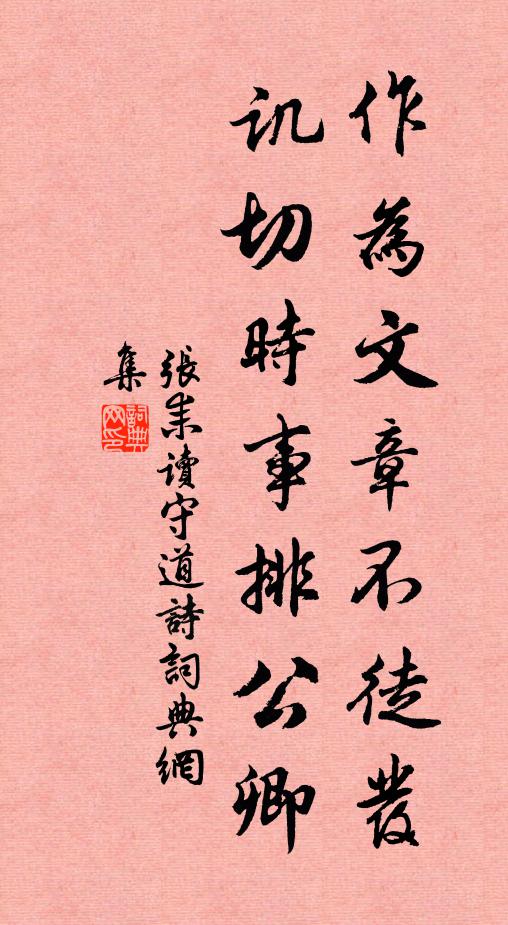 作為文章不徒發
譏切時事排公卿
張耒讀守道詩詞典網
集
詞典网印